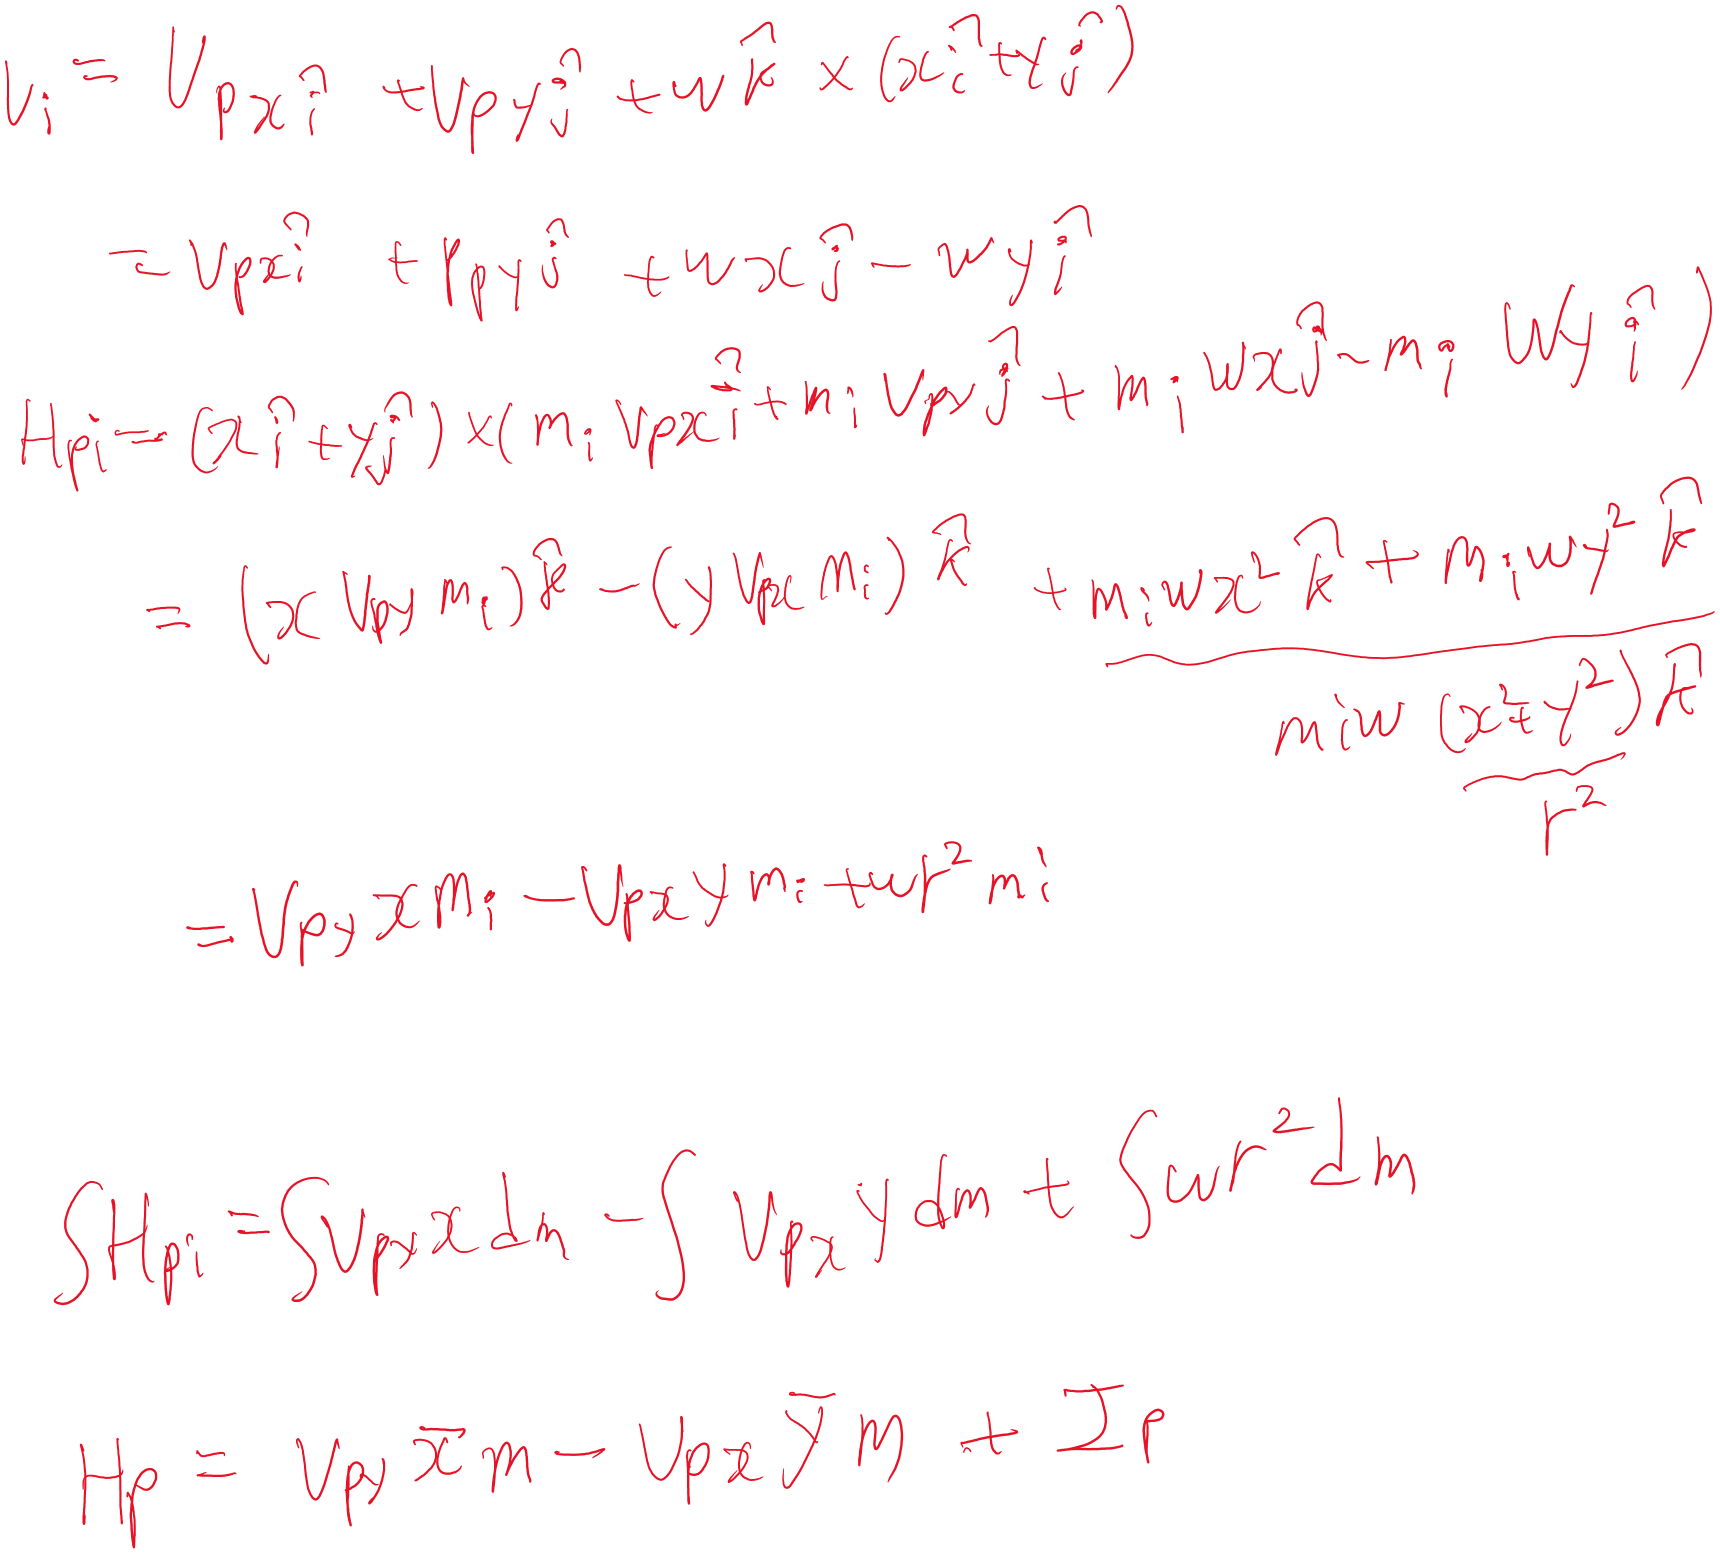 v_i = V_{px} î + V_{py} ĵ + w k̂ × (x î + y ĵ)
= V_{px} î + V_{py} ĵ + w x ĵ − w y î
H_{pi} = (x î + y ĵ) × (m_i V_{px} î + m_i V_{py} ĵ + m_i w x ĵ − m_i w y î)
= (x V_{py} m_i) k̂ − (y V_{px} m_i) k̂ + m_i w x² k̂ + m_i w y² k̂
m_i w (x² + y²) k̂
r²
= V_{py} x m_i − V_{px} y m_i + w r² m_i
∫ H_{pi} = ∫ V_{py} x dm − ∫ V_{px} y dm + ∫ w r² dm
H_p = V_{py} x̄ m − V_{px} ȳ m + I_p